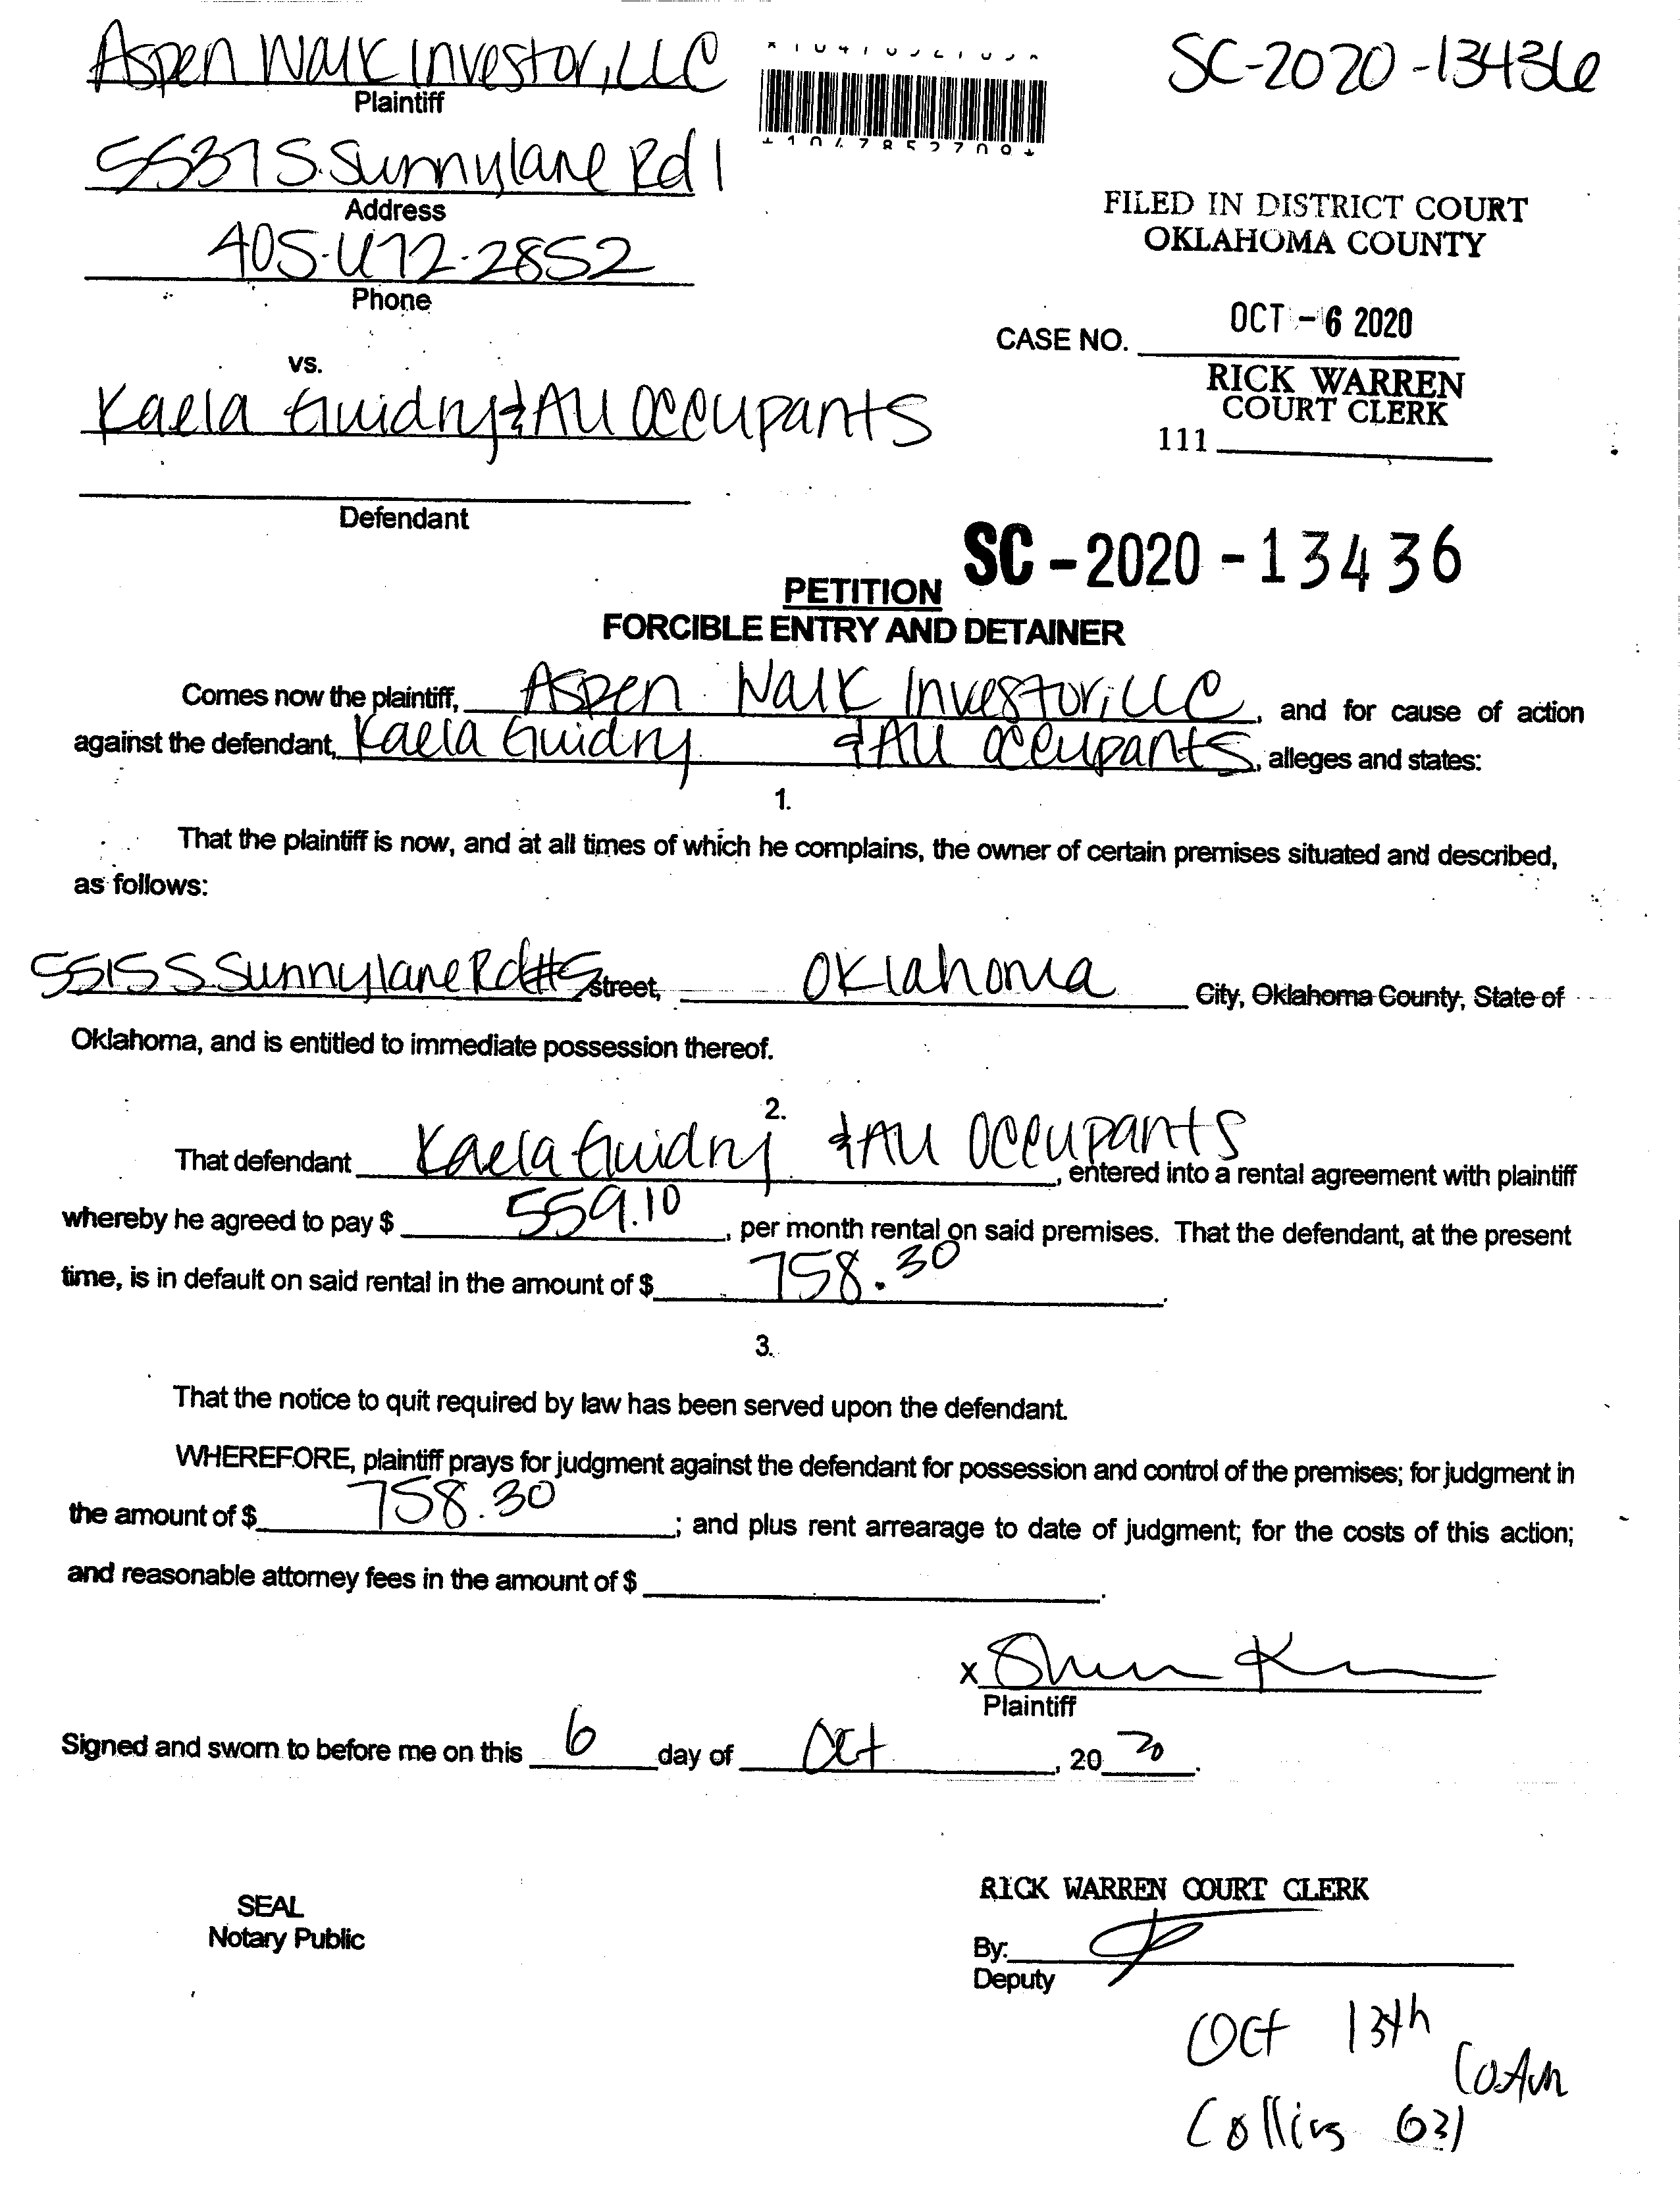 Aspen Walk Investor, LLC
SC-2020-13436
Plaintiff
*1047852709*
5537 S. Sunnylane Rd 1
Address
FILED IN DISTRICT COURT
OKLAHOMA COUNTY
405-672-2852
Phone
OCT - 6 2020
CASE NO.
vs.
RICK WARREN
COURT CLERK
Kaela Guidry & All Occupants
111
Defendant
SC - 2020 - 13436
PETITION
FORCIBLE ENTRY AND DETAINER
Comes now the plaintiff, Aspen Walk Investor, LLC, and for cause of action
against the defendant, Kaela Guidry & All Occupants, alleges and states:
1.
That the plaintiff is now, and at all times of which he complains, the owner of certain premises situated and described,
as follows:
5515 S Sunnylane Rd #5 Street, Oklahoma City, Oklahoma County, State of
Oklahoma, and is entitled to immediate possession thereof.
2.
That defendant Kaela Guidry & All Occupants, entered into a rental agreement with plaintiff
whereby he agreed to pay $ 559.10, per month rental on said premises. That the defendant, at the present
time, is in default on said rental in the amount of $ 758.30.
3.
That the notice to quit required by law has been served upon the defendant.
WHEREFORE, plaintiff prays for judgment against the defendant for possession and control of the premises; for judgment in
the amount of $ 758.30; and plus rent arrearage to date of judgment; for the costs of this action;
and reasonable attorney fees in the amount of $ .
X
Plaintiff
Signed and sworn to before me on this 6 day of Oct, 20 20.
RICK WARREN COURT CLERK
SEAL
Notary Public
By:
Deputy
Oct 13th
Collins 631